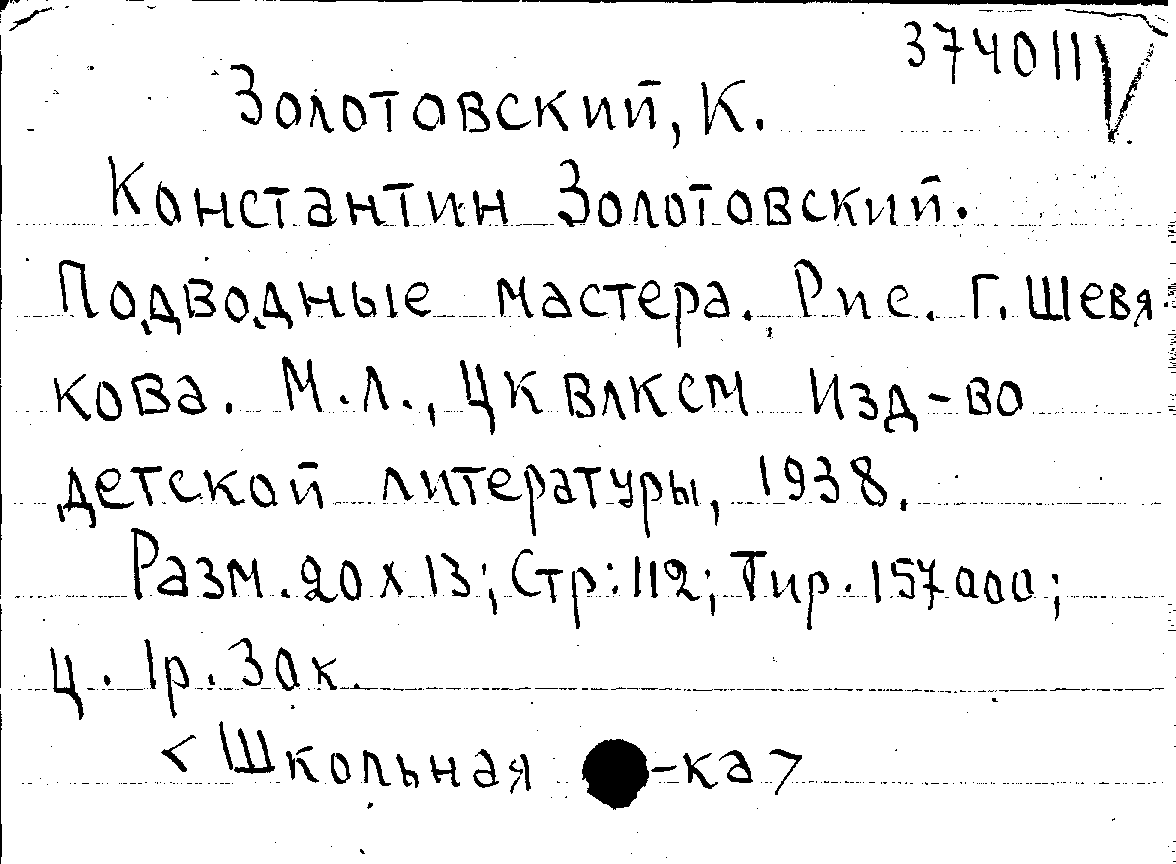 374011 V
Золотовский, К.
Константин Золотовский.
Подводные мастера. Рис. Г. Шевя-
кова. М.Л., ЦК ВЛКСМ Изд-во
детской литературы, 1938.
Разм. 20 х 13; Стр: 112; Тир. 157000;
Ц. 1р. 30к.
<Школьная -ка>